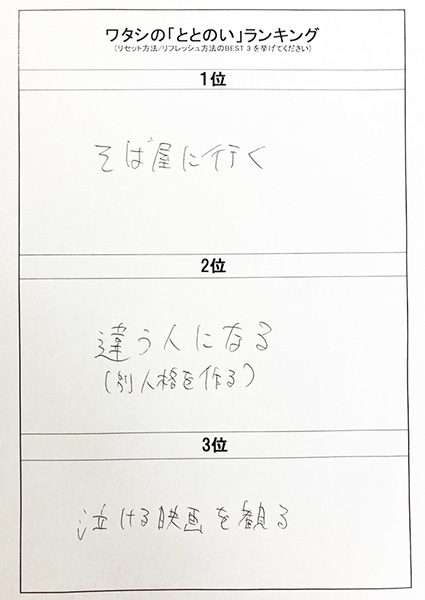 ワタシの「ととのい」ランキング
（リセット方法/リフレッシュ方法のBEST 3 を挙げてください）
1位
そば屋に行く
2位
違う人になる
(別人格を作る)
3位
泣ける映画を観る